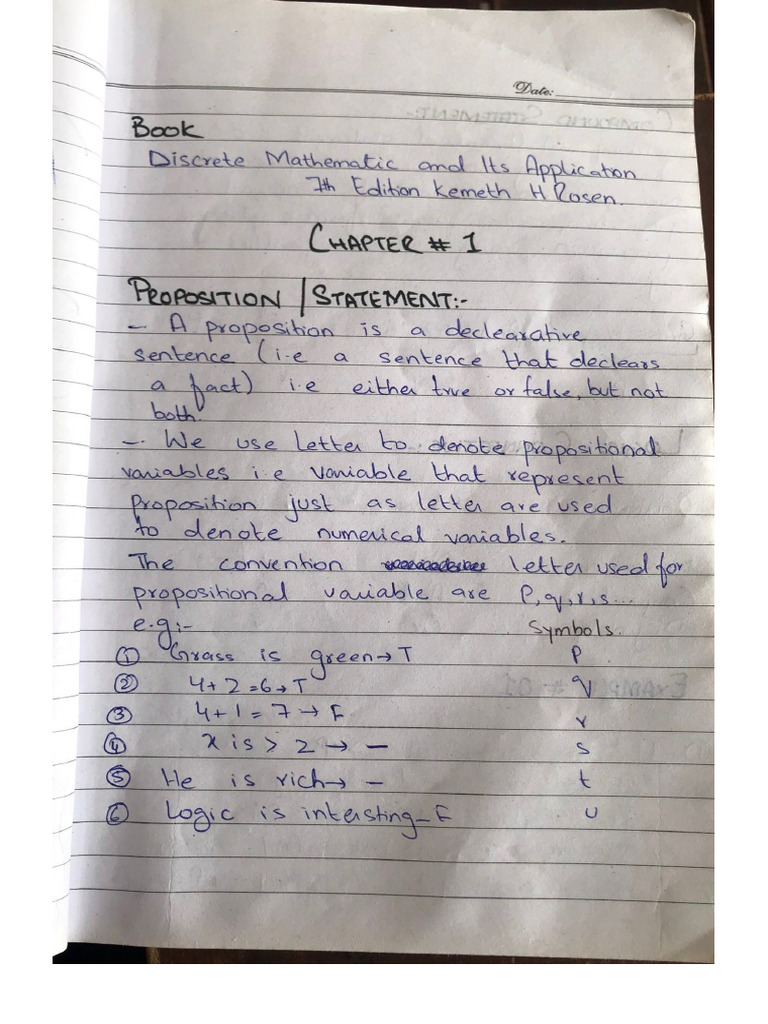 Date:
Book
Discrete Mathematic and Its Application
7th Edition Kemeth H Rosen.
CHAPTER # 1
PROPOSITION / STATEMENT:-
- A proposition is a declearative
sentence (i.e a sentence that declears
a fact) i.e either true or false, but not
both.
- We use Letter to denote propositional
variables i.e variable that represent
proposition just as letter are used
to denote numerical variables.
The convention letter used for
propositional variable are P, q, r, s...
e.g:- Symbols.
① Grass is green → T P
② 4+2=6 → T q
③ 4+1=7 → F r
④ x is > 2 → - s
⑤ He is rich → - t
⑥ Logic is intersting - F u